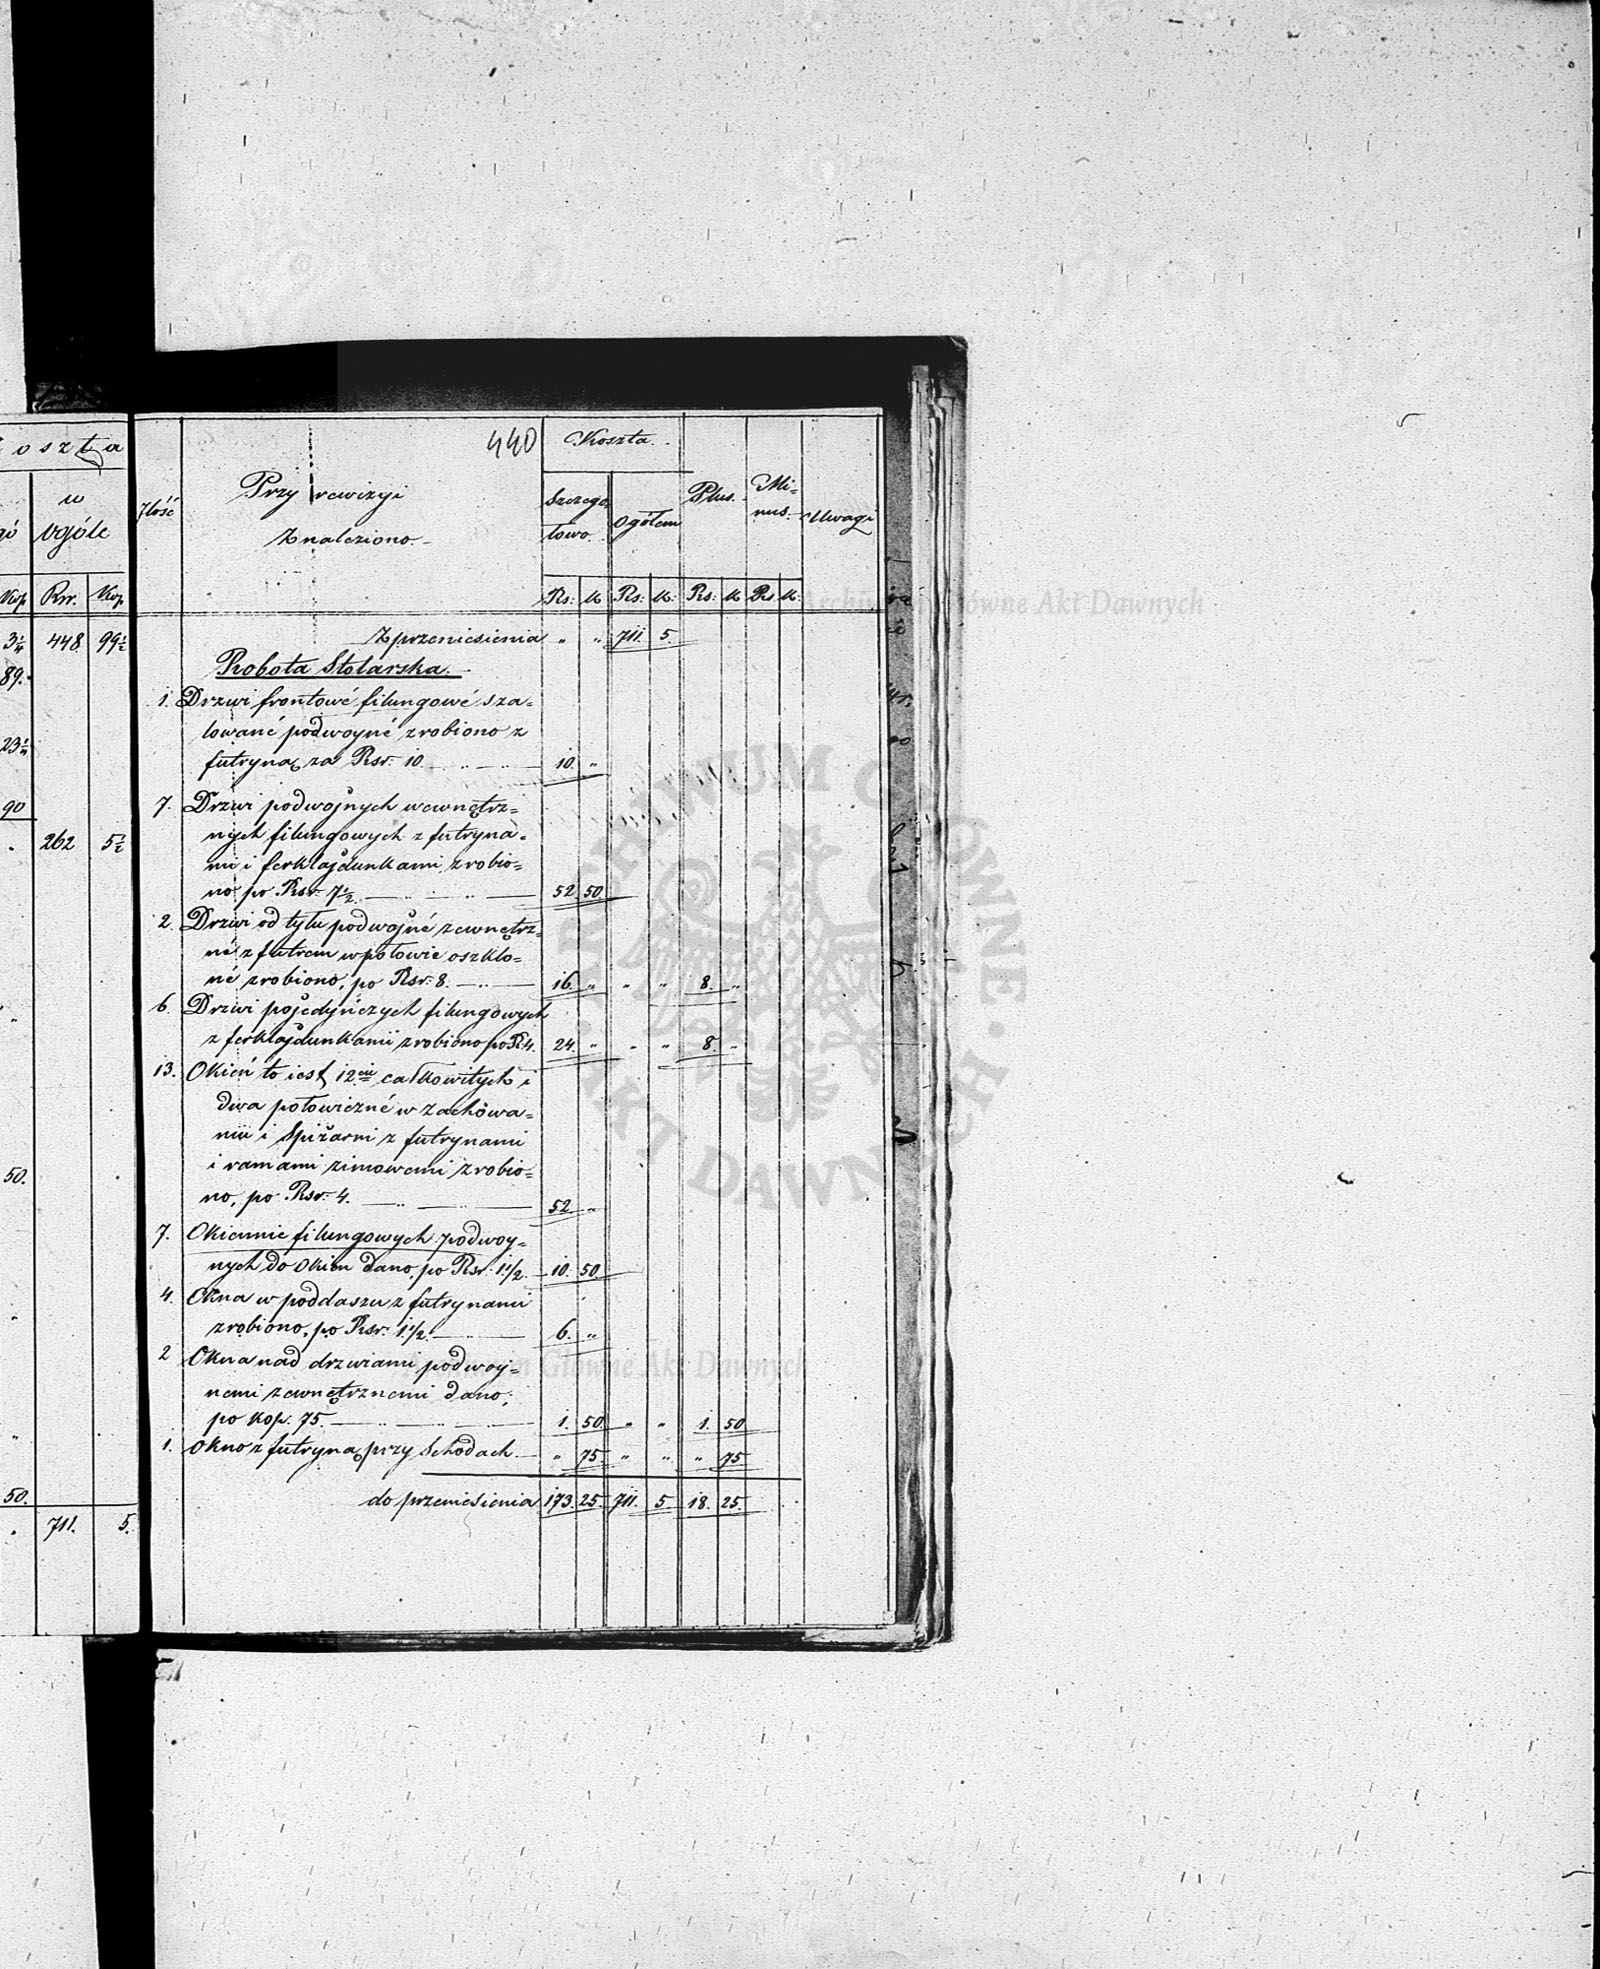 oszta
w
ogóle
Kop
Rsr.
Kop
3¼ 448 99½
89.
23¼
90
262 5½
50.
50.
711. 5.
440
Ilość
Przy rewizyi
Znaleziono.
Koszta.
Szczegó-
łowo.
Ogółem
Plus.
Mi-
nus.
Uwagi
Rs: K Rs: K: Rs: K Rs K:
Z przeniesienia " " 711 5.
Robota Stolarska.
1. Drzwi frontowé filungowé sza-
lowané podwoyné zrobiono z
futryną za Rsr. 10. 10. "
7. Drzwi podwojnych wewnętrz-
nych filungowych z futryna-
mi i ferklajdunkami zrobio-
no po Rsr. 7½. 52. 50.
2. Drzwi od tyłu podwojné zewnętrz-
né z futrem w połowie oszklo-
né zrobiono, po Rsr: 8. 16. " " " 8. "
6. Drzwi pojedyńczych filungowych
z ferklajdunkami zrobiono po R: 4. 24. " " " 8. "
13. Okień to iest 12cie całkowitych i
dwa połowiczné w zachówa-
niu i Spiżarni z futrynami
i ramami zimowemi zrobio-
no, po Rsr. 4. 52. "
7. Okiennic filungowych podwoy-
nych do okien dano, po Rsr. 1.½. 10. 50.
4. Okna w poddaszu z futrynami
zrobiono, po Rsr. 1.½. 6. "
2 Okna nad drzwiami podwoy-
nemi zewnętrznemi dano,
po kop. 75. 1. 50. " " 1. 50
1. Okno z futryną przy Schodach " 75. " " " 75.
do przeniesienia 173. 25. 711. 5 18. 25.
Archiwum Główne Akt Dawnych
Archiwum Główne Akt Dawnych
ARCHIWUM GŁÓWNE AKT DAWNYCH